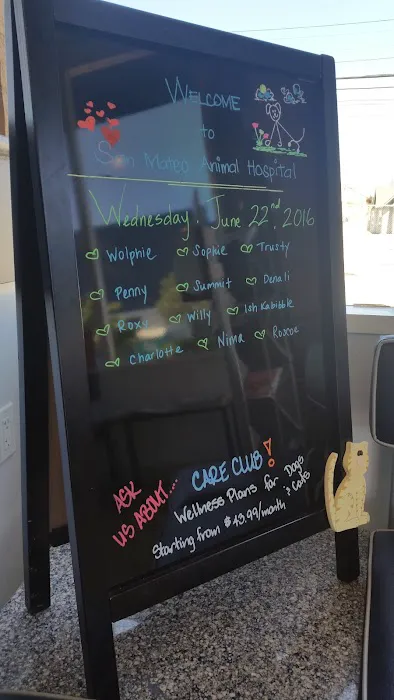 Welcome
to
San Mateo Animal Hospital
Wednesday, June 22nd, 2016
Wolphie Sophie Trusty
Penny Summit Denali
Roxy Willy Ish Kabibble
Charlotte Nima Roscoe
ASK US ABOUT....
CARE CLUB!
Wellness Plans for Dogs & Cats
Starting from $43.99/month